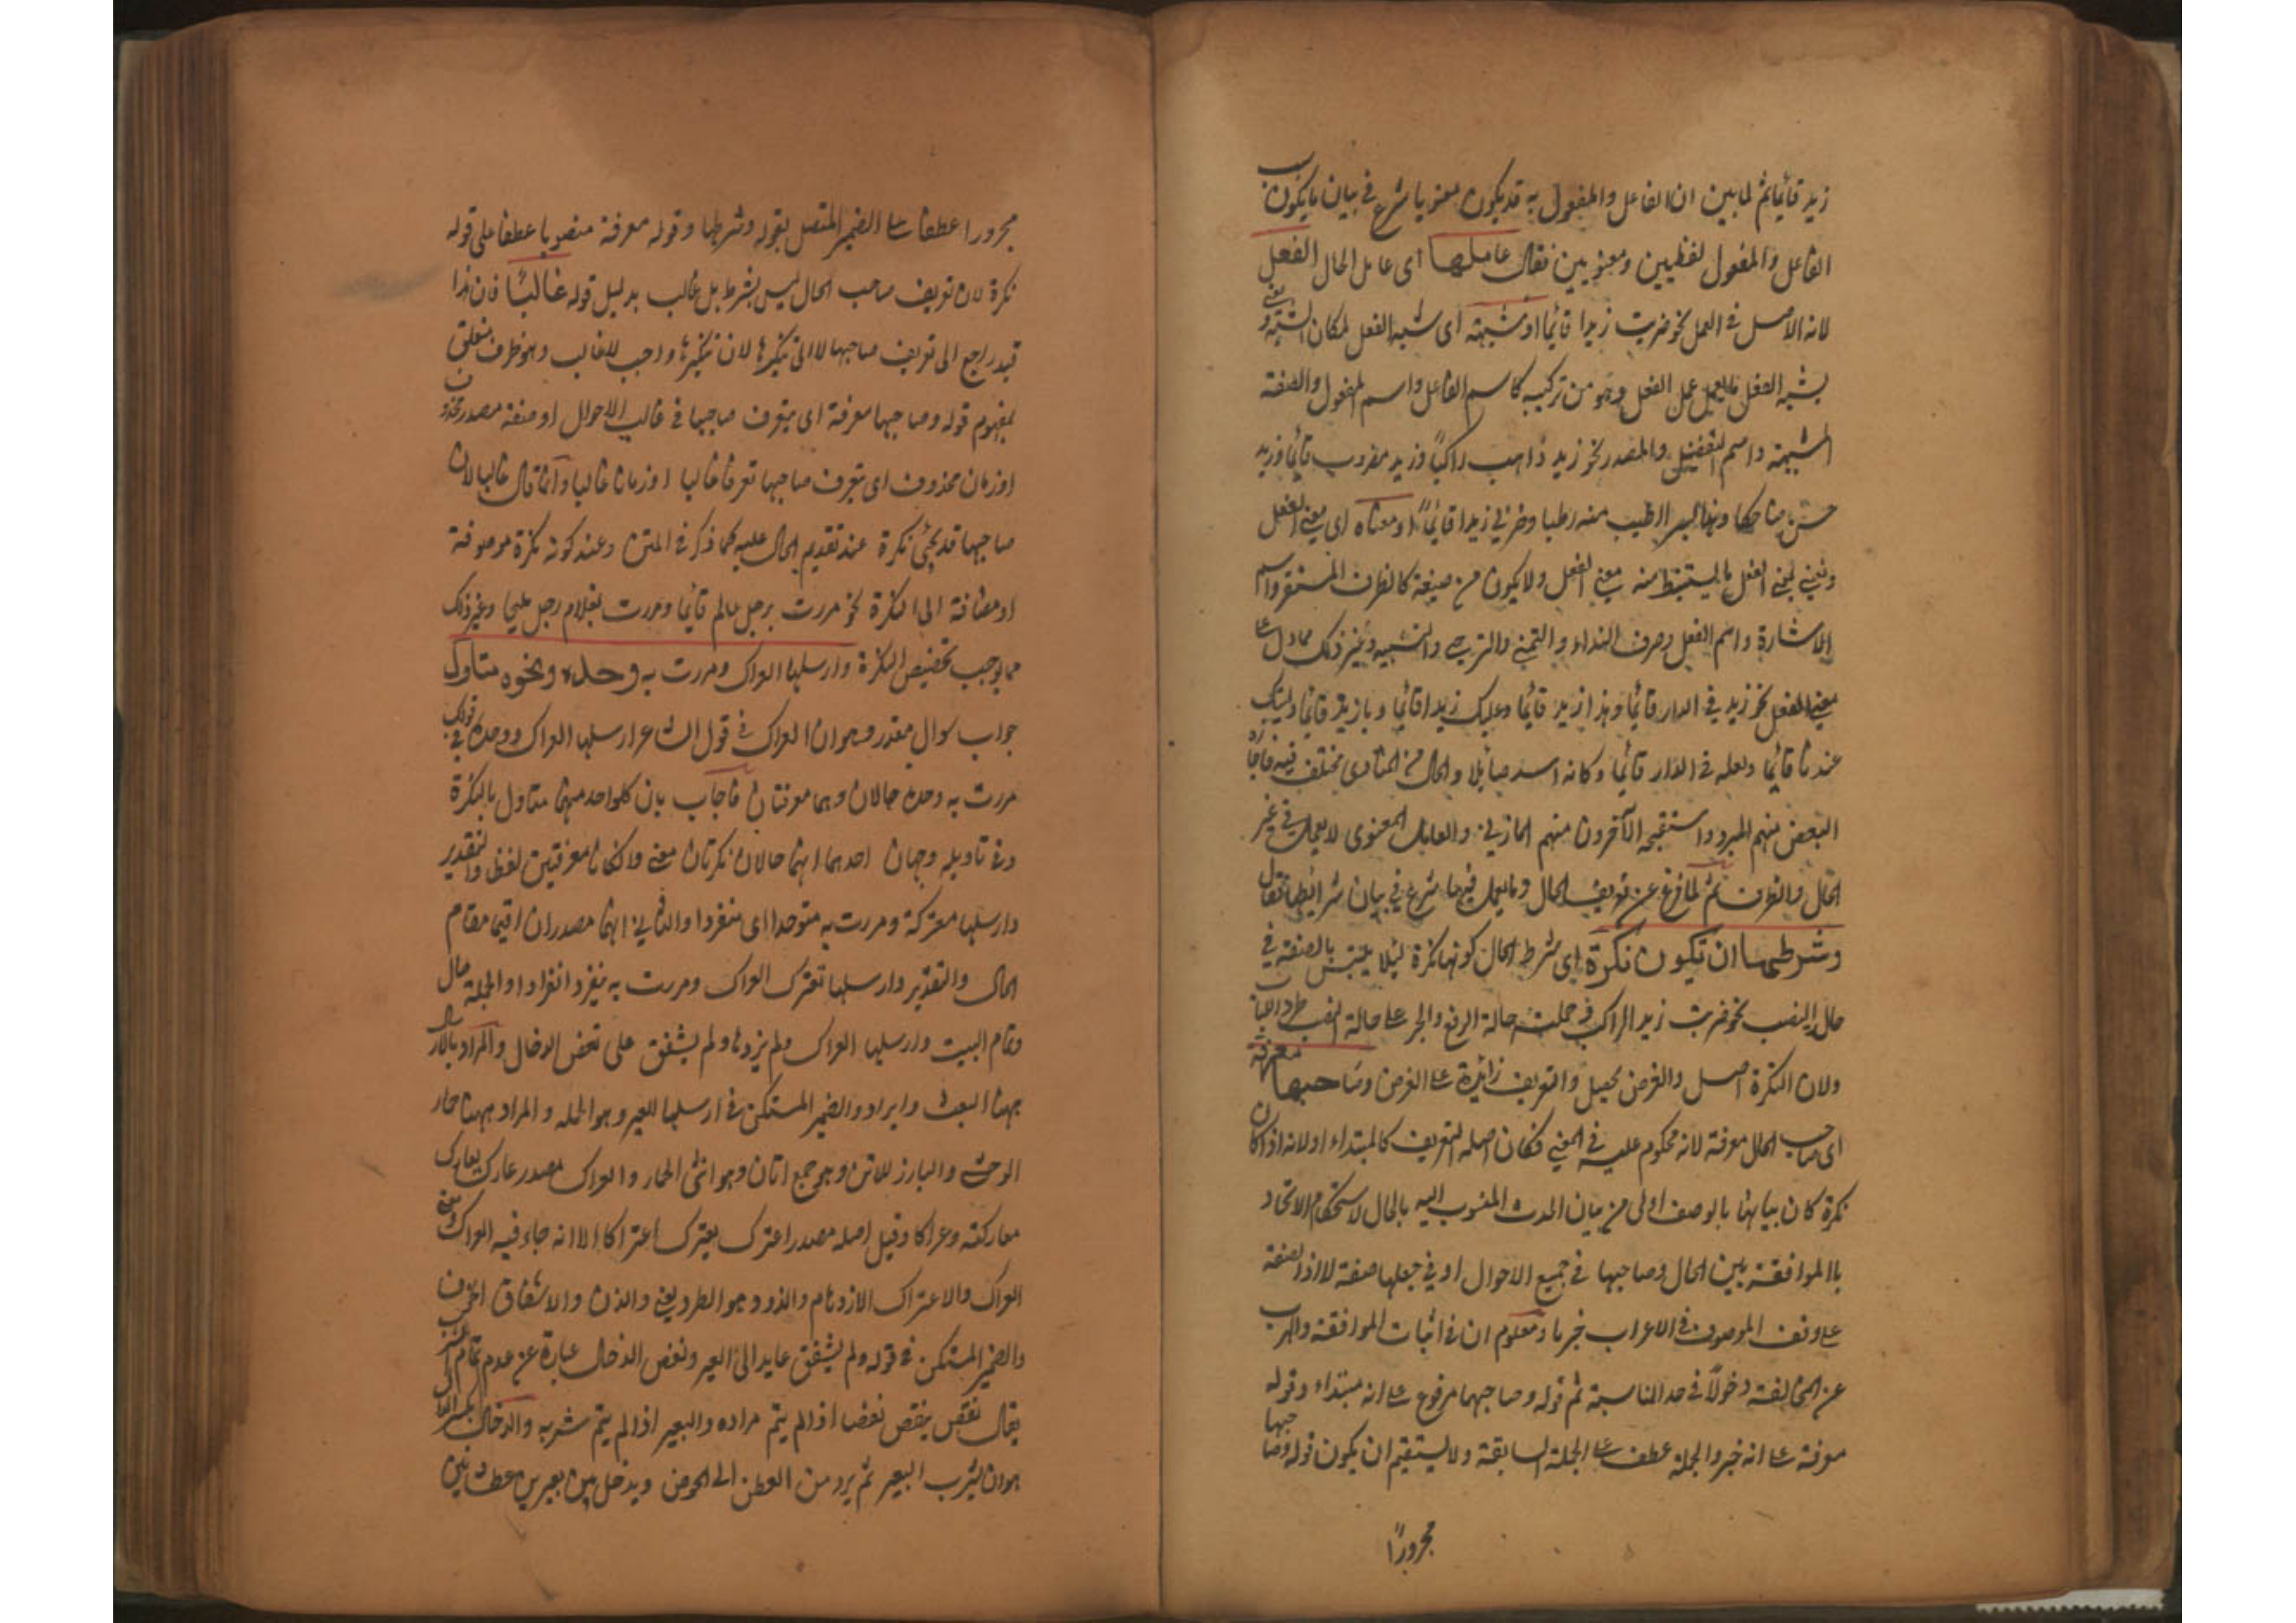 زيد قائما ثم لما بين ان الفاعل والمفعول به قد يكون معنويا شرع في بيان ما يكون بسبب
الفاعل والمفعول لفظيين ومعنويين فقال عاملها اى عامل الحال الفعل
لانه الاصل في العمل نحو ضربت زيدا قائما او شبهه اى شبه الفعل لمكان الشبه ونعنى
بشبه الفعل ما يعمل عمل الفعل وهو من تركيبه كاسم الفاعل واسم المفعول والصفة
المشبهة واسم التفضيل والمصدر نحو زيد ذاهب راكبًا وزيد مضروب قائما وزيد
حسن ضاحكا وهذا بسرا اطيب منه رطبا وضربي زيدا قائمًا او معناه اى معنى الفعل
ونعني بمعنى الفعل ما يستنبط منه معنى الفعل ولا يكون من صيغة كالظرف المستقر واسم
الاشارة واسم الفعل وحرف النداء والتمني والترجي والتشبيه وغير ذلك مما دل على
معنى الفعل نحو زيد في الدار قائما وهذا زيد قائما وعليك زيدا قائما ويا زيد قائما وليتك
عندنا قائما ولعله في الدار قائما وكانه اسد صائلا والحال من المنادى مختلف فيه فاجازه
البعض منهم المبرد واستقبحه الآخرون منهم المازني والعامل المعنوى لا يعمل في غير
الحال والظرف ثم لما فرغ عن تعريف الحال وما يعمل فيها شرع في بيان شرائطها فقال
وشرطها ان تكون نكرة اى شرط الحال كونها نكرة لئلا يلتبس بالصفة في
حال النصب نحو ضربت زيدا الراكب فحملت حالة الرفع والجر على حالة النصب طردا للباب
ولان النكرة اصل والغرض يحصل والتعريف زائدة على الغرض وصاحبها معرفة
اى صاحب الحال معرفة لانه محكوم عليه في المعنى فكان اصله التعريف كالمبتداء او لانه اذا كان
نكرة كان بيانها بالوصف اولى من بيان الحدث المنسوب اليه بالحال لاستحكام الاتحاد
با الموافقة بين الحال وصاحبها في جميع الاحوال اوفي جعلها صفة لا اذ الصفة
على وفق الموصوف في الاعراب خبريا ومعلوم ان في اثبات الموافقة والهرب
عن المخالفة دخولًا في حد المناسبة ثم قوله وصاحبها مرفوع على انه مبتداء وقوله
معرفة على انه خبر والجملة عطف على الجملة السابقة ولا يستقيم ان يكون قوله وصاحبها
مجرورًا
مجرورا عطفا على الضمير المتصل بقوله وشرطها وقوله معرفة منصوبا عطفا على قوله
نكرة لان تعريف صاحب الحال ليس بشرط بل غالب بدليل قوله غالبًا فان هذا
قيد راجع الى تعريف صاحبها لا الى تنكيرها لان تنكيرها واجب لا غالب وهو ظرف متعلق
بمفهوم قوله وصاحبها معرفة اى يتعرف صاحبها في غالب الاحوال او صفة مصدر محذوف
او زمان محذوف اى يتعرف صاحبها تعرفا غالبا او زمانا غالبا وانما قال غالبا لان
صاحبها قد يجئ نكرة عند تقديم الحال عليه كما ذكر في المتن وعند كونه نكرة موصوفة
او مضافة الى النكرة نحو مررت برجل عالم قائما ومررت بغلام رجل عليما وغير ذلك
مما يوجب تخصيص النكرة وارسلها العراك ومررت به وحده ونحوه متاول
جواب سوال مقدر وهو ان العراك في قول الشاعر ارسلها العراك ووحده في قولك
مررت به وحده حالان وهما معرفتان فاجاب بان كلواحد منهما متاول بالنكرة
وفي تاويله وجهان احدهما انهما حالان نكرتان معنى وان كانا معرفتين لفظا والتقدير
وارسلها معتركة ومررت به متوحدا اى منفردا والثاني انهما مصدران اقيما مقام
الحال والتقدير وارسلها تعترك العراك ومررت به ينفرد انفرادا والجملة حال
وتمام البيت وارسلها العراك ولم يزدها ولم يشفق على نغض الدخال والمراد بالارسال
ههنا البعث وايراد والضمير المستكن في ارسلها للعير وهو الحمله و المراد ههنا حمار
الوحش والبارز للاتن وهي جمع اتان وهو انثى الحمار والعراك مصدر عارك يعارك
معاركة وعراكا وقيل اصله مصدر اعترك يعترك اعتراكا الا انه جاء فيه العراك ومعنى
العراك والاعتراك الازدحام والذود هو الطرد يعني والذن والاشفاق الخوف
والضمير المستكن في قوله ولم يشفق عايد الى العير ونغض الدخال عبارة عن عدم تمام الشرب
يقال نغض ينغض نغضا اذا لم يتم مراده والبعير اذا لم يتم شربه والدخال بكسر الدال
هو ان يشرب البعير ثم يرد من العطن الى الحوض ويدخل بين بعيرين عطشانين